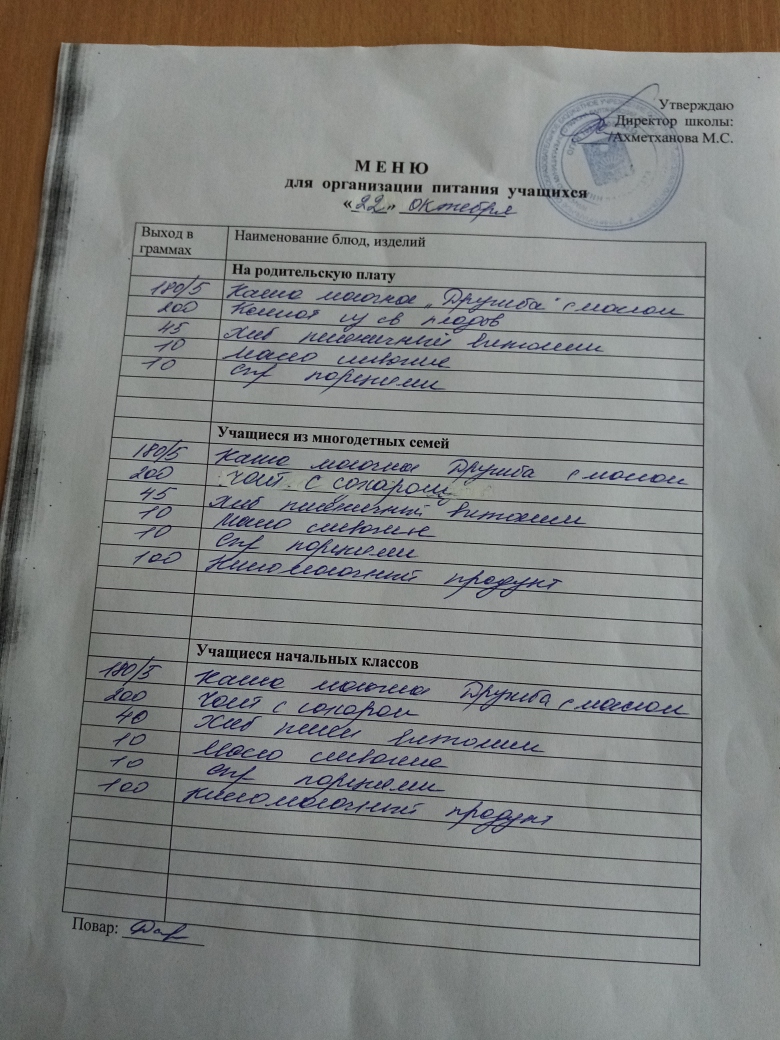 Утверждаю
Директор школы:
/Ахметханова М.С.
МЕНЮ
для организации питания учащихся
«22» октября
Выход в граммах Наименование блюд, изделий
На родительскую плату
180/5 Каша молочная „Дружба" с маслом
200 Компот из св плодов
45 Хлеб пшеничный витамин
10 Масло сливочное
10 Сыр порциями
Учащиеся из многодетных семей
180/5 Каша молочная Дружба с маслом
200 Чай с сахаром
45 Хлеб пшеничный витамин
10 Масло сливочное
10 Сыр порциями
100 Кисломолочный продукт
Учащиеся начальных классов
180/5 Каша молочная Дружба с маслом
200 Чай с сахаром
40 Хлеб пшен витамин
10 Масло сливочное
10 Сыр порциями
100 Кисломолочный продукт
Повар: